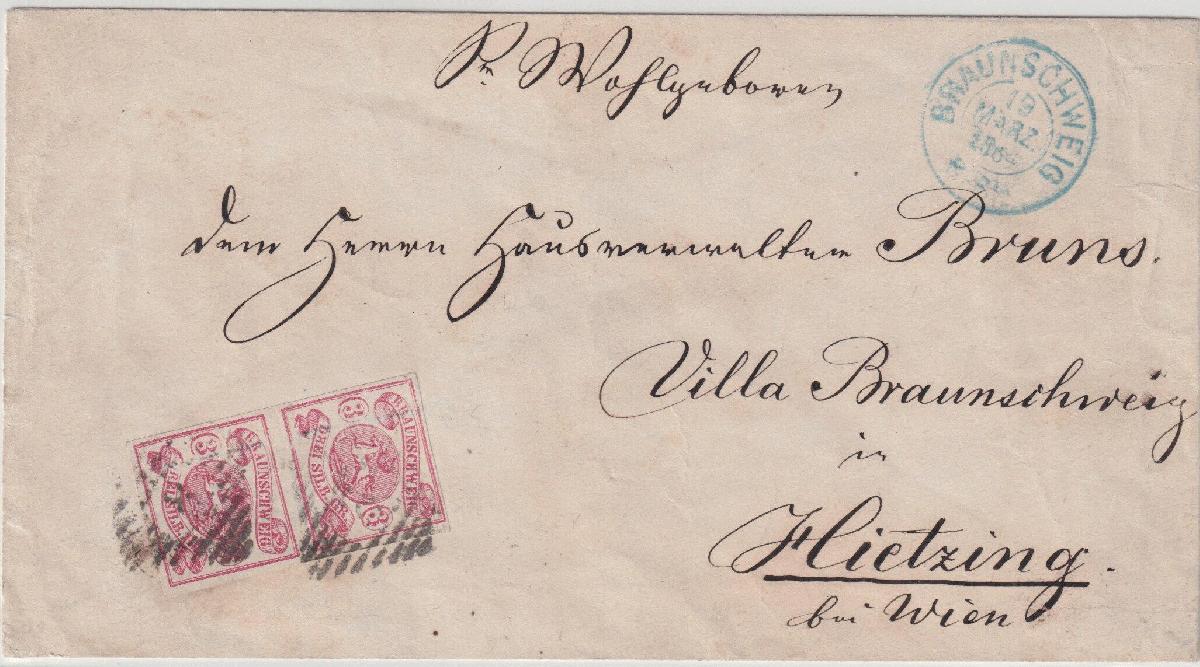 Sr. Wohlgeboren
BRAUNSCHWEIG
19
MÄRZ
dem Herrn Hausverwalter Bruns.
Villa Braunschweig
in
Hietzing.
bei Wien
BRAUNSCHWEIG
3
3
DREI SILB. GR.
BRAUNSCHWEIG
3
3
DREI SILB. GR.